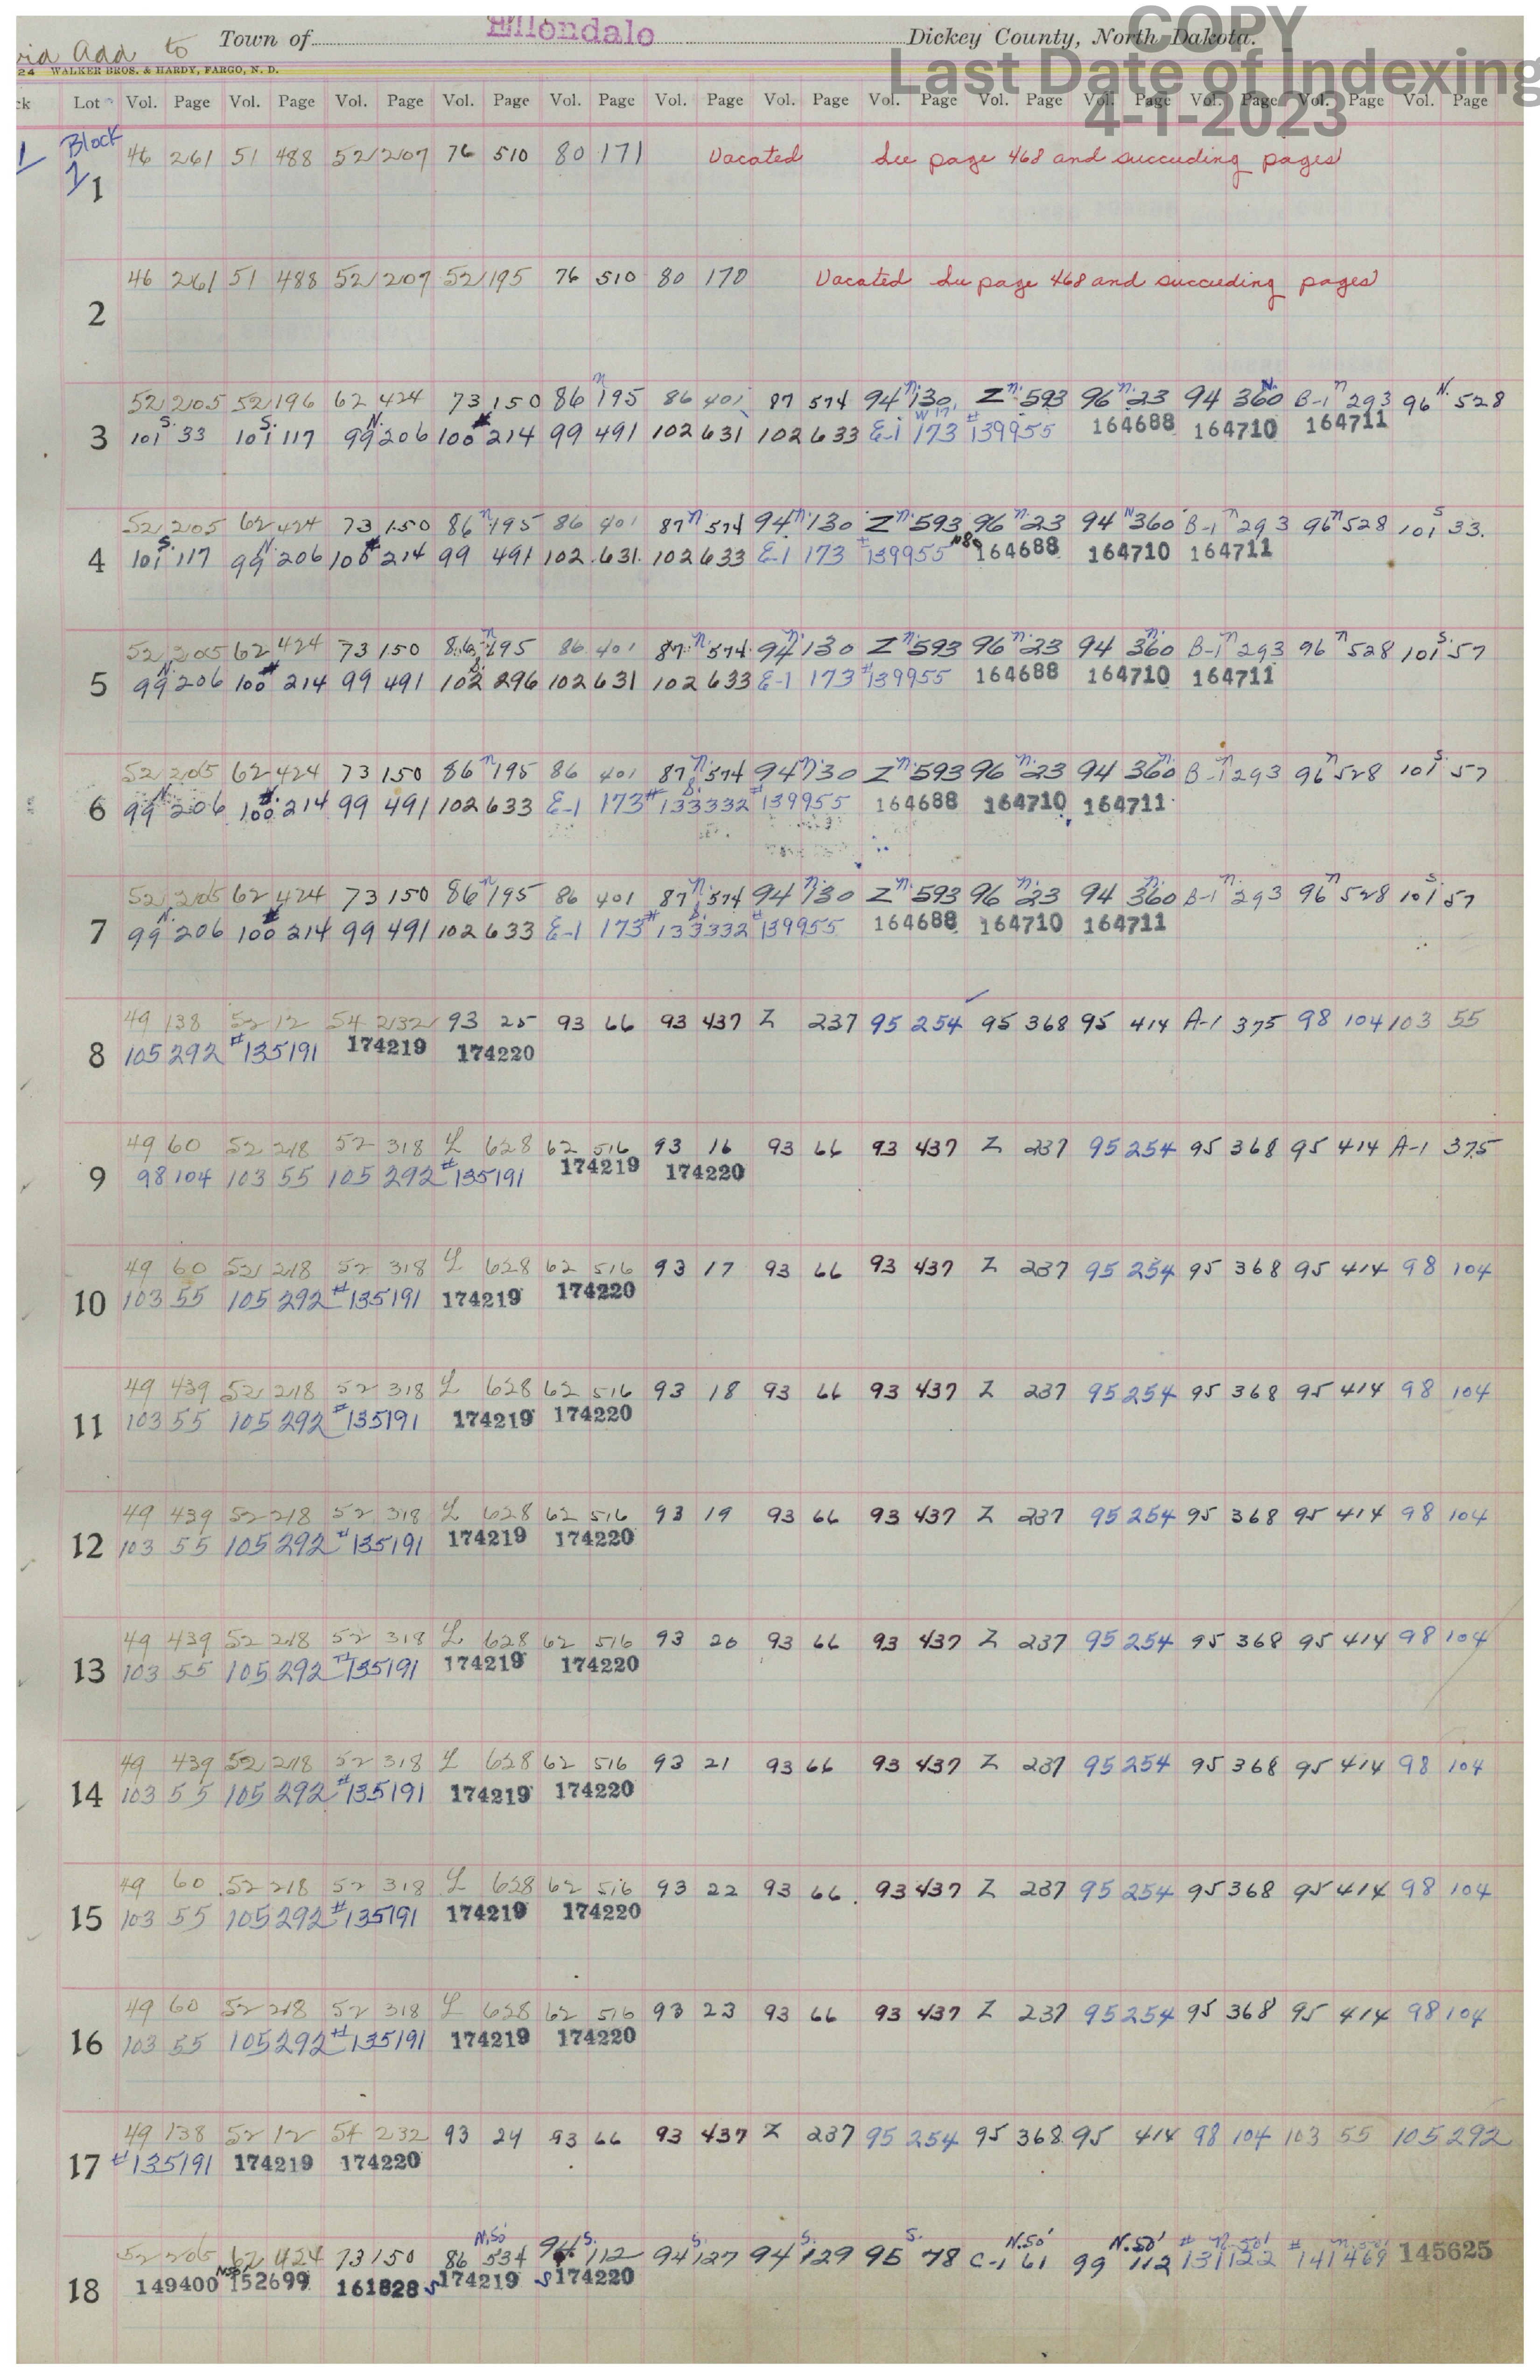 Add to Town of Ellendale Dickey County, North Dakota.
COPY
Last Date of Indexing
4-1-2023
24 WALKER BROS. & HARDY, FARGO, N. D.
ck Lot Vol. Page Vol. Page Vol. Page Vol. Page Vol. Page Vol. Page Vol. Page Vol. Page Vol. Page Vol. Page Vol. Page Vol. Page Vol. Page
1 Block 2
1 46 261 51 488 52 207 76 510 80 171 Vacated See page 468 and succeeding pages
2 46 261 51 488 52 207 52 195 76 510 80 170 Vacated See page 468 and succeeding pages
52 205 52 196 62 424 73 150 86 n 195 86 401 87 574 94 n. 130 Z n. 593 96 n. 23 94 360 N. B-1 n 293 96 N. 528
3 101 S. 33 101 S. 117 99 N. 206 100 # 214 99 491 102 631 102 633 E-1 173 #139955 164688 164710 164711
52 205 62 424 73 150 86 n 195 86 401 87 n. 574 94 n. 130 Z n. 593 96 n 23 94 N 360 B-1 n 293 96 n 528 101 S 33.
4 101 S. 117 99 N. 206 100 # 214 99 491 102 631 102 633 E-1 173 #139955 164688 164710 164711
52 205 62 424 73 150 86 n 195 86 401 87 n. 574 94 n. 130 Z n. 593 96 n. 23 94 n. 360 B-1 n 293 96 n 528 101 S. 57
5 99 N. 206 100 # 214 99 491 102 S. 296 102 631 102 633 E-1 173 #139955 164688 164710 164711
52 205 62 424 73 150 86 n 195 86 401 87 n. 574 94 n. 130 Z n. 593 96 n. 23 94 n. 360 B-1 n 293 96 n 528 101 S 57
6 99 N. 206 100 # 214 99 491 102 633 E-1 173 #133332 S. #139955 164688 164710 164711
52 205 62 424 73 150 86 n 195 86 401 87 n. 574 94 n. 130 Z n. 593 96 n. 23 94 n. 360 B-1 n 293 96 n 528 101 S. 57
7 99 N. 206 100 # 214 99 491 102 633 E-1 173 #133332 S. #139955 164688 164710 164711
49 138 52 12 54 232 93 25 93 66 93 437 Z 237 95 254 95 368 95 414 A-1 375 98 104 103 55
8 105 292 #135191 174219 174220
49 60 52 218 52 318 Y 628 62 516 93 16 93 66 93 437 Z 237 95 254 95 368 95 414 A-1 375
9 98 104 103 55 105 292 #135191 174219 174220
49 60 52 218 52 318 Y 628 62 516 93 17 93 66 93 437 Z 237 95 254 95 368 95 414 98 104
10 103 55 105 292 #135191 174219 174220
49 439 52 218 52 318 Y 628 62 516 93 18 93 66 93 437 Z 237 95 254 95 368 95 414 98 104
11 103 55 105 292 #135191 174219 174220
49 439 52 218 52 318 Y 628 62 516 93 19 93 66 93 437 Z 237 95 254 95 368 95 414 98 104
12 103 55 105 292 #135191 174219 174220
49 439 52 218 52 318 Y 628 62 516 93 20 93 66 93 437 Z 237 95 254 95 368 95 414 98 104
13 103 55 105 292 #135191 174219 174220
49 439 52 218 52 318 Y 628 62 516 93 21 93 66 93 437 Z 237 95 254 95 368 95 414 98 104
14 103 55 105 292 #135191 174219 174220
49 60 52 218 52 318 Y 628 62 516 93 22 93 66 93 437 Z 237 95 254 95 368 95 414 98 104
15 103 55 105 292 #135191 174219 174220
49 60 52 218 52 318 Y 628 62 516 93 23 93 66 93 437 Z 237 95 254 95 368 95 414 98 104
16 103 55 105 292 #135191 174219 174220
49 138 52 12 54 232 93 24 93 66 93 437 Z 237 95 254 95 368 95 414 98 104 103 55 105 292
17 #135191 174219 174220
52 205 62 424 73 150 86 N.50' 534 94 S. 112 94 S. 127 94 S. 129 95 S. 78 C-1 N.50' 61 99 N.50' 112 # n.50' 131122 # n.50' 141469 145625
18 149400 N50' 152699 161828 S 174219 S 174220